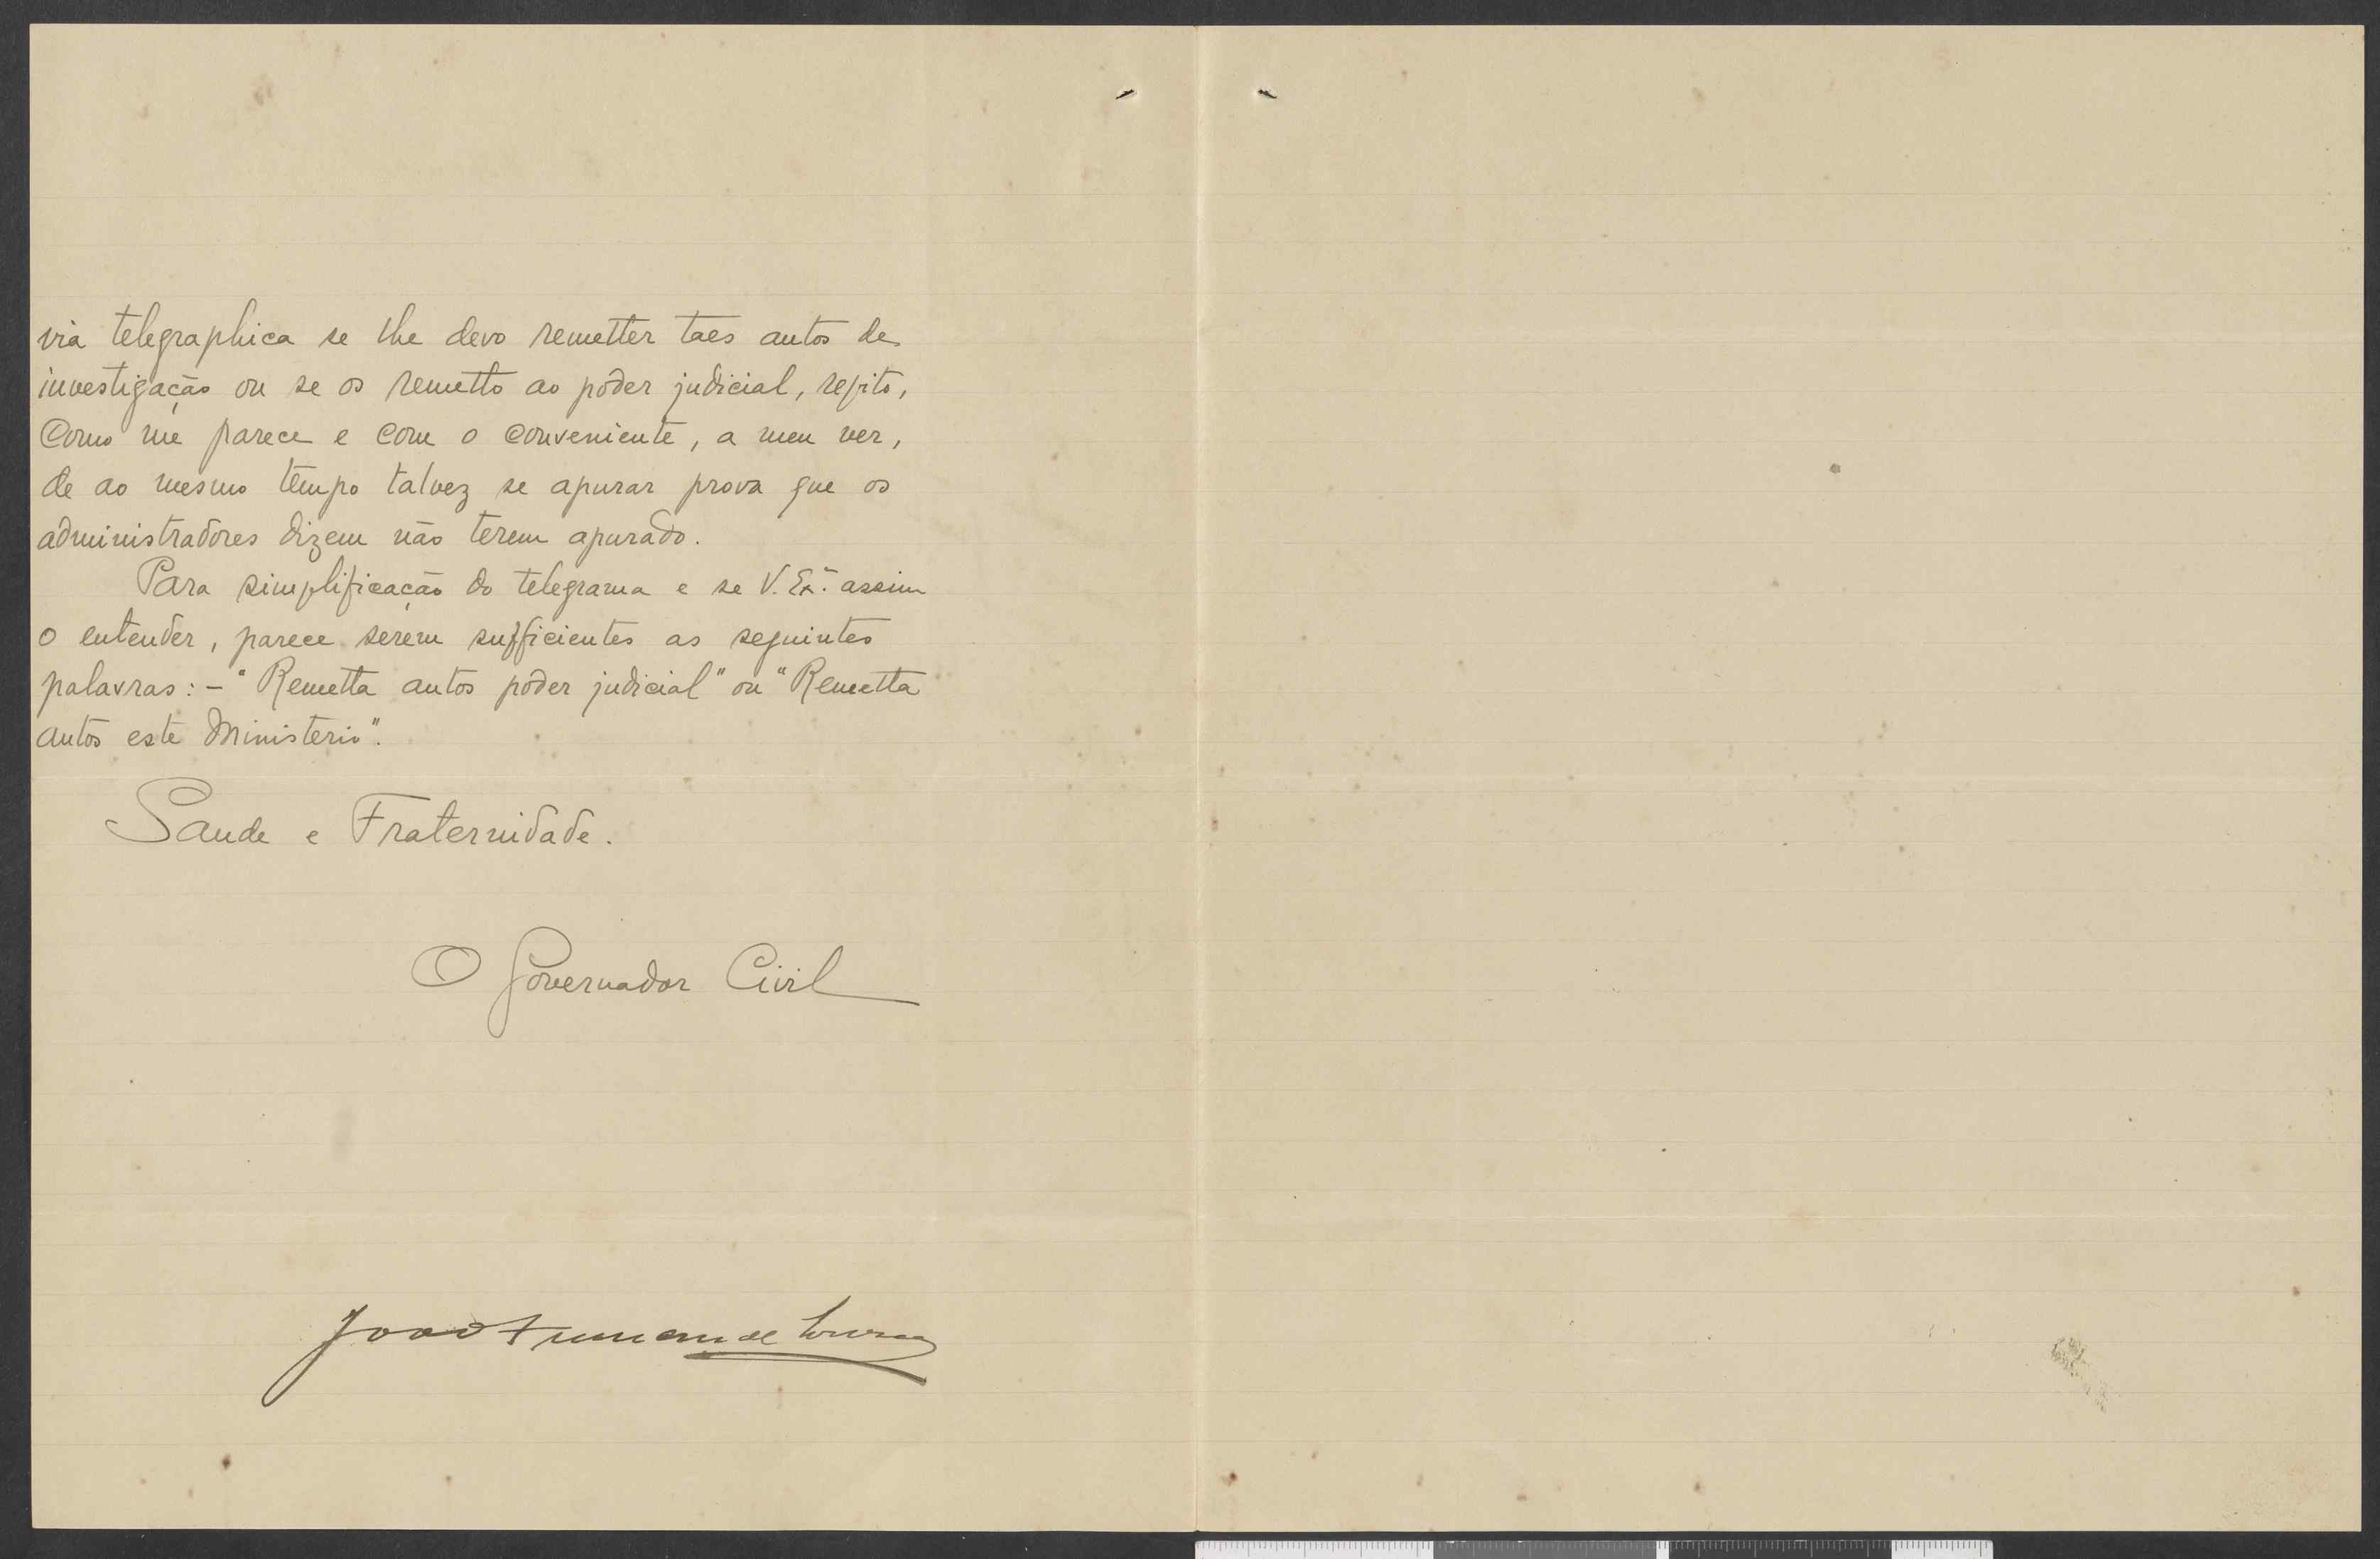 via telegraphica se lhe devo remetter taes autos de
investigação ou se os remetto ao poder judicial, repito,
Como me parece e com o conveniente, a meu ver,
de ao mesmo tempo talvez se apurar prova que os
administradores dizem não terem apurado.
Para simplificação do telegrama e se V. Exª. assim
o entender, parece serem sufficientes as seguintes
palavras: - "Remetta autos poder judicial" ou "Remetta
autos este Ministerio".
Saude e Fraternidade.
O Governador Civil
João